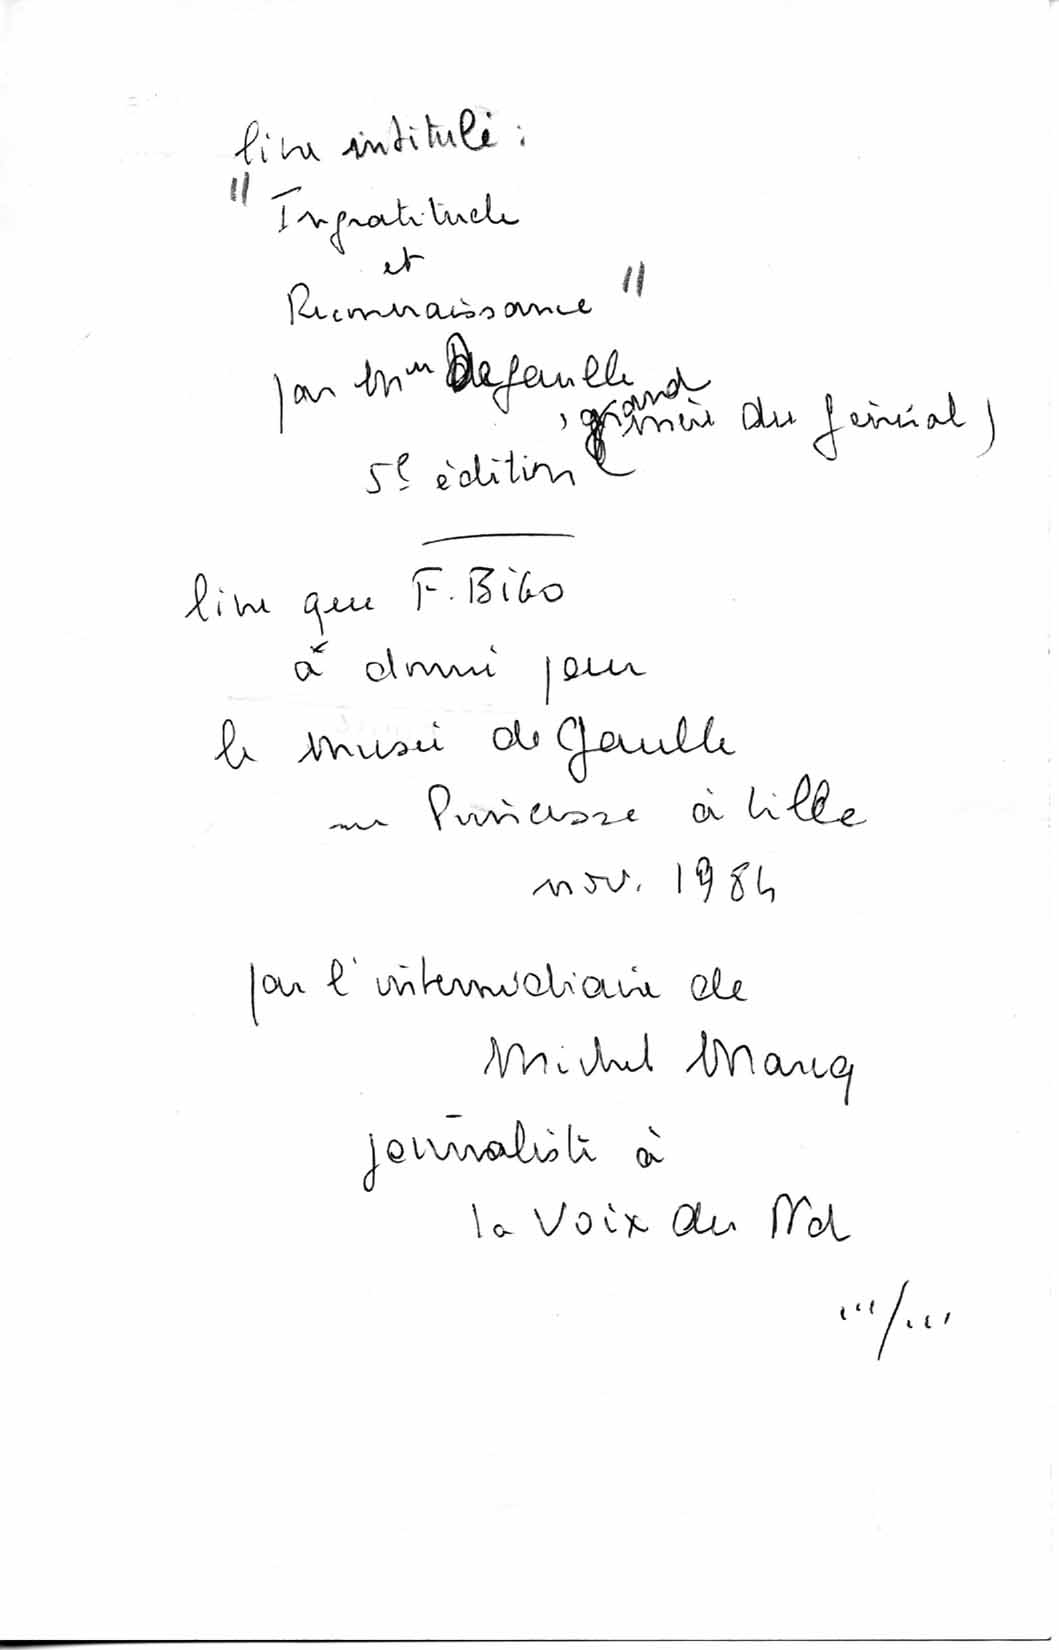 livre intitulé :
" Ingratitude
et
Reconnaissance "
par Mme De Gaulle
, grand
mère du Général )
5e édition
livre que F. Bibo
a donné pour
le musée de Gaulle
rue Princesse à Lille
nov. 1984
par l'intermédiaire de
Michel Marcq
journaliste à
la Voix du Nd
.../...